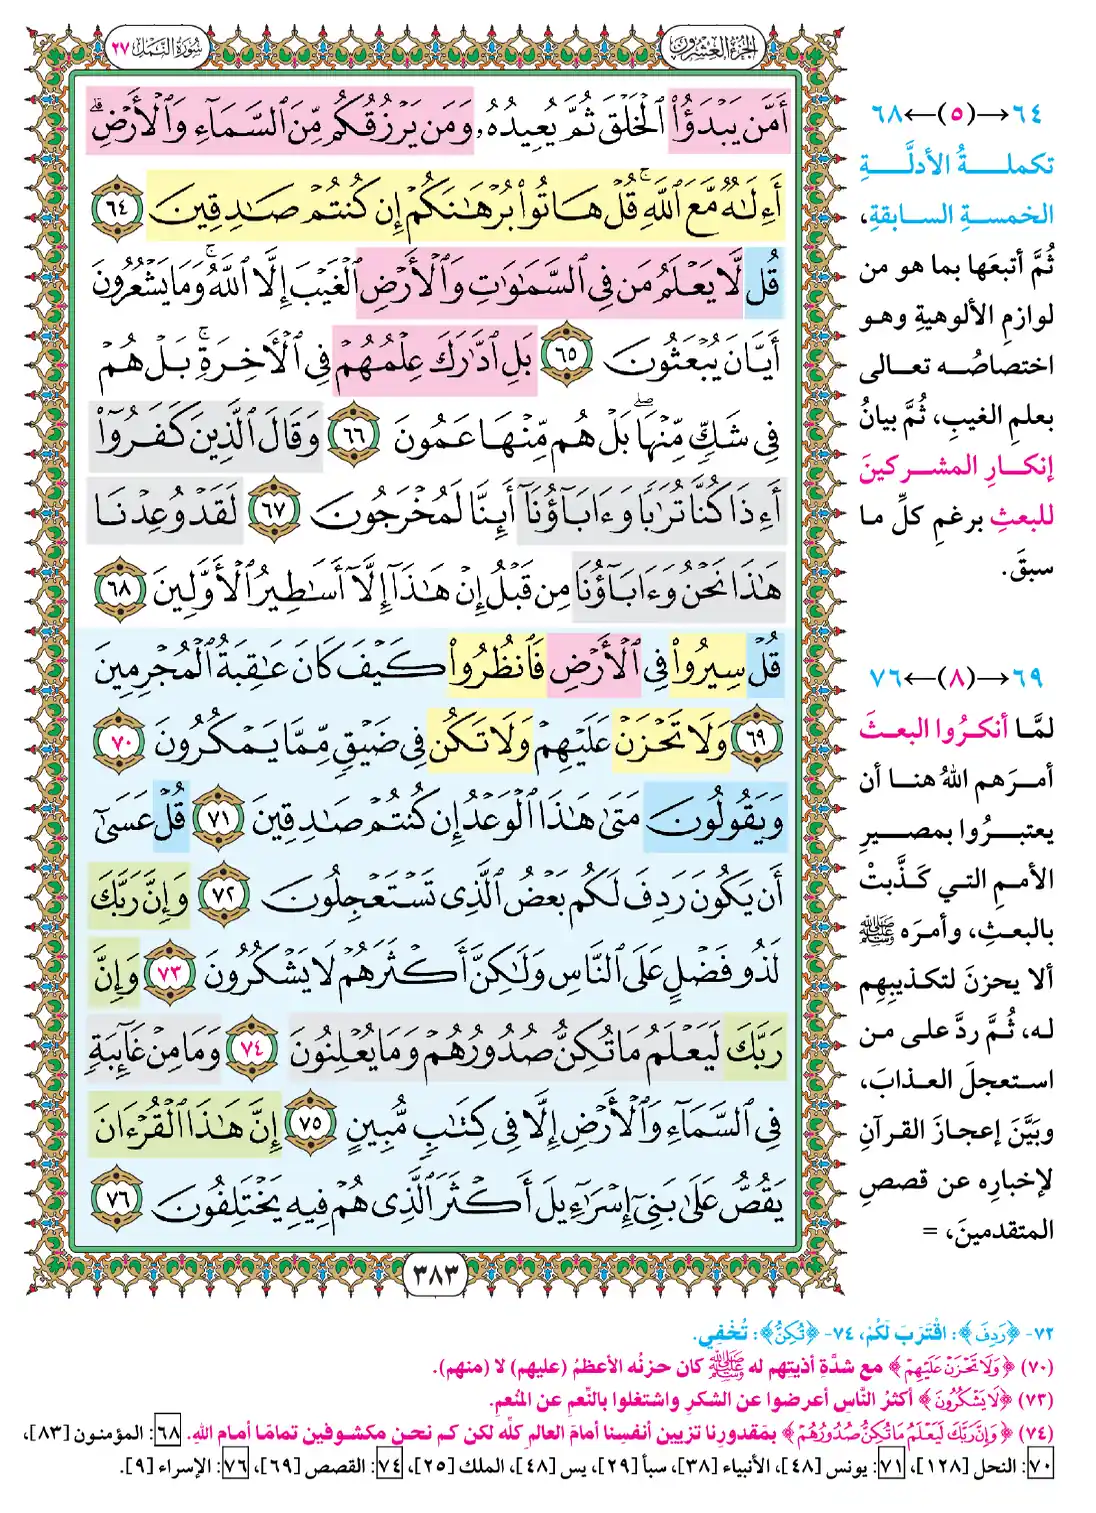 الجزء العشرون
سورة النمل ٢٧
أَمَّن يَبْدَؤُا۟ الْخَلْقَ ثُمَّ يُعِيدُهُۥ وَمَن يَرْزُقُكُم مِّنَ السَّمَآءِ وَالْأَرْضِ ۗ
أَءِلَٰهٌ مَّعَ اللَّهِ ۚ قُلْ هَاتُوا۟ بُرْهَٰنَكُمْ إِن كُنتُمْ صَٰدِقِينَ ٦٤
قُل لَّا يَعْلَمُ مَن فِي السَّمَٰوَٰتِ وَالْأَرْضِ الْغَيْبَ إِلَّا اللَّهُ ۚ وَمَا يَشْعُرُونَ
أَيَّانَ يُبْعَثُونَ ٦٥ بَلِ ادَّٰرَكَ عِلْمُهُمْ فِي الْأَخِرَةِ ۚ بَلْ هُمْ
فِي شَكٍّ مِّنْهَا ۖ بَلْ هُم مِّنْهَا عَمُونَ ٦٦ وَقَالَ الَّذِينَ كَفَرُوٓا۟
أَءِذَا كُنَّا تُرَٰبًا وَءَابَآؤُنَآ أَئِنَّا لَمُخْرَجُونَ ٦٧ لَقَدْ وُعِدْنَا
هَٰذَا نَحْنُ وَءَابَآؤُنَا مِن قَبْلُ إِنْ هَٰذَآ إِلَّآ أَسَٰطِيرُ الْأَوَّلِينَ ٦٨
قُلْ سِيرُوا۟ فِي الْأَرْضِ فَانظُرُوا۟ كَيْفَ كَانَ عَٰقِبَةُ الْمُجْرِمِينَ
٦٩ وَلَا تَحْزَنْ عَلَيْهِمْ وَلَا تَكُن فِي ضَيْقٍ مِّمَّا يَمْكُرُونَ ٧٠
وَيَقُولُونَ مَتَىٰ هَٰذَا الْوَعْدُ إِن كُنتُمْ صَٰدِقِينَ ٧١ قُلْ عَسَىٰٓ
أَن يَكُونَ رَدِفَ لَكُم بَعْضُ الَّذِي تَسْتَعْجِلُونَ ٧٢ وَإِنَّ رَبَّكَ
لَذُو فَضْلٍ عَلَى النَّاسِ وَلَٰكِنَّ أَكْثَرَهُمْ لَا يَشْكُرُونَ ٧٣ وَإِنَّ
رَبَّكَ لَيَعْلَمُ مَا تُكِنُّ صُدُورُهُمْ وَمَا يُعْلِنُونَ ٧٤ وَمَا مِنْ غَآئِبَةٍ
فِي السَّمَآءِ وَالْأَرْضِ إِلَّا فِي كِتَٰبٍ مُّبِينٍ ٧٥ إِنَّ هَٰذَا الْقُرْءَانَ
يَقُصُّ عَلَىٰ بَنِيٓ إِسْرَٰٓءِيلَ أَكْثَرَ الَّذِي هُمْ فِيهِ يَخْتَلِفُونَ ٧٦
٣٨٣
٦٤→(٥)←٦٨
تكملةُ الأدلَّةِ
الخمسةِ السابقةِ،
ثُمَّ أتبعَها بما هو من
لوازمِ الألوهيةِ وهو
اختصاصُه تعالى
بعلمِ الغيبِ، ثُمَّ بيانُ
إنكارِ المشركينَ
للبعثِ برغمِ كلِّ ما
سبقَ.
٦٩→(٨)←٧٦
لمَّا أنكرُوا البعثَ
أمرَهم اللهُ هنا أن
يعتبرُوا بمصيرِ
الأممِ التي كَذَّبتْ
بالبعثِ، وأمرَه ﷺ
ألا يحزنَ لتكذيبِهِم
له، ثُمَّ ردَّ على من
استعجلَ العذابَ،
وبَيَّنَ إعجازَ القرآنِ
لإخبارِه عن قصصِ
المتقدمينَ، =
٧٢- ﴿رَدِفَ﴾: اقْتَرَبَ لَكُمْ، ٧٤- ﴿تُكِنُّ﴾: تُخْفِي.
(٧٠) ﴿وَلَا تَحْزَنْ عَلَيْهِمْ﴾ مع شدَّةِ أذيتِهم له ﷺ كان حزنُه الأعظمُ (عليهم) لا (منهم).
(٧٣) ﴿لَا يَشْكُرُونَ﴾ أكثرُ النَّاسِ أعرضوا عن الشكرِ واشتغلوا بالنِّعمِ عن المُنعِم.
(٧٤) ﴿وَإِنَّ رَبَّكَ لَيَعْلَمُ مَا تُكِنُّ صُدُورُهُمْ﴾ بمَقدورِنا تزيين أنفسِنا أمامَ العالم كلِّه لكن كم نحن مكشوفين تمامًا أمام اللهِ. ٦٨: المؤمنون [٨٣]،
٧٠: النحل [١٢٨]، ٧١: يونس [٤٨]، الأنبياء [٣٨]، سبأ [٢٩]، يس [٤٨]، الملك [٢٥]، ٧٤: القصص [٦٩]، ٧٦: الإسراء [٩].